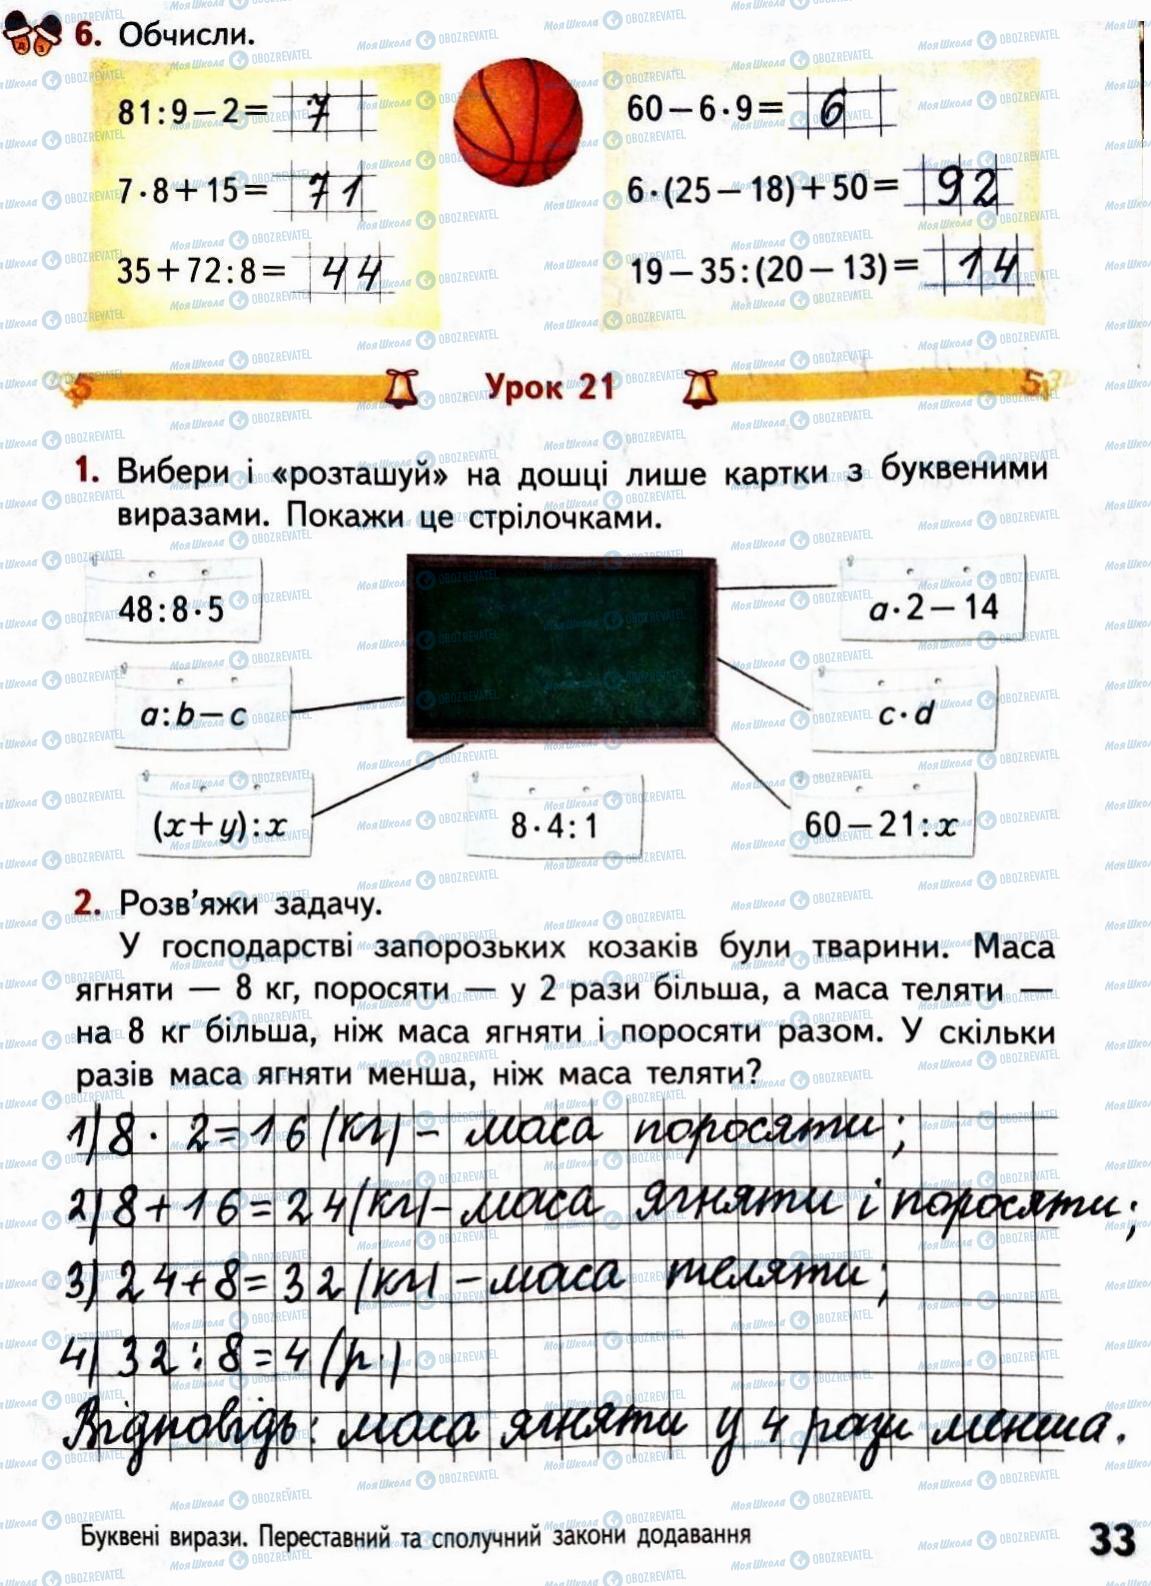 6. Обчисли.
81:9−2= 7
60−6·9= 6
7·8+15= 71
6·(25−18)+50= 92
35+72:8= 44
19−35:(20−13)= 14
Урок 21
1. Вибери і «розташуй» на дошці лише картки з буквеними
виразами. Покажи це стрілочками.
48:8·5
a·2−14
a:b−c
c·d
(x+y):x
8·4:1
60−21:x
2. Розв'яжи задачу.
У господарстві запорозьких козаків були тварини. Маса
ягняти — 8 кг, поросяти — у 2 рази більша, а маса теляти —
на 8 кг більша, ніж маса ягняти і поросяти разом. У скільки
разів маса ягняти менша, ніж маса теляти?
1) 8 · 2=16 (кг) – маса поросяти;
2) 8+16=24 (кг) – маса ягняти і поросяти;
3) 24+8=32 (кг) – маса теляти;
4) 32:8=4 (р.)
Відповідь: маса ягняти у 4 рази менша.
Буквені вирази. Переставний та сполучний закони додавання
33
МояШкола OBOZREVATEL